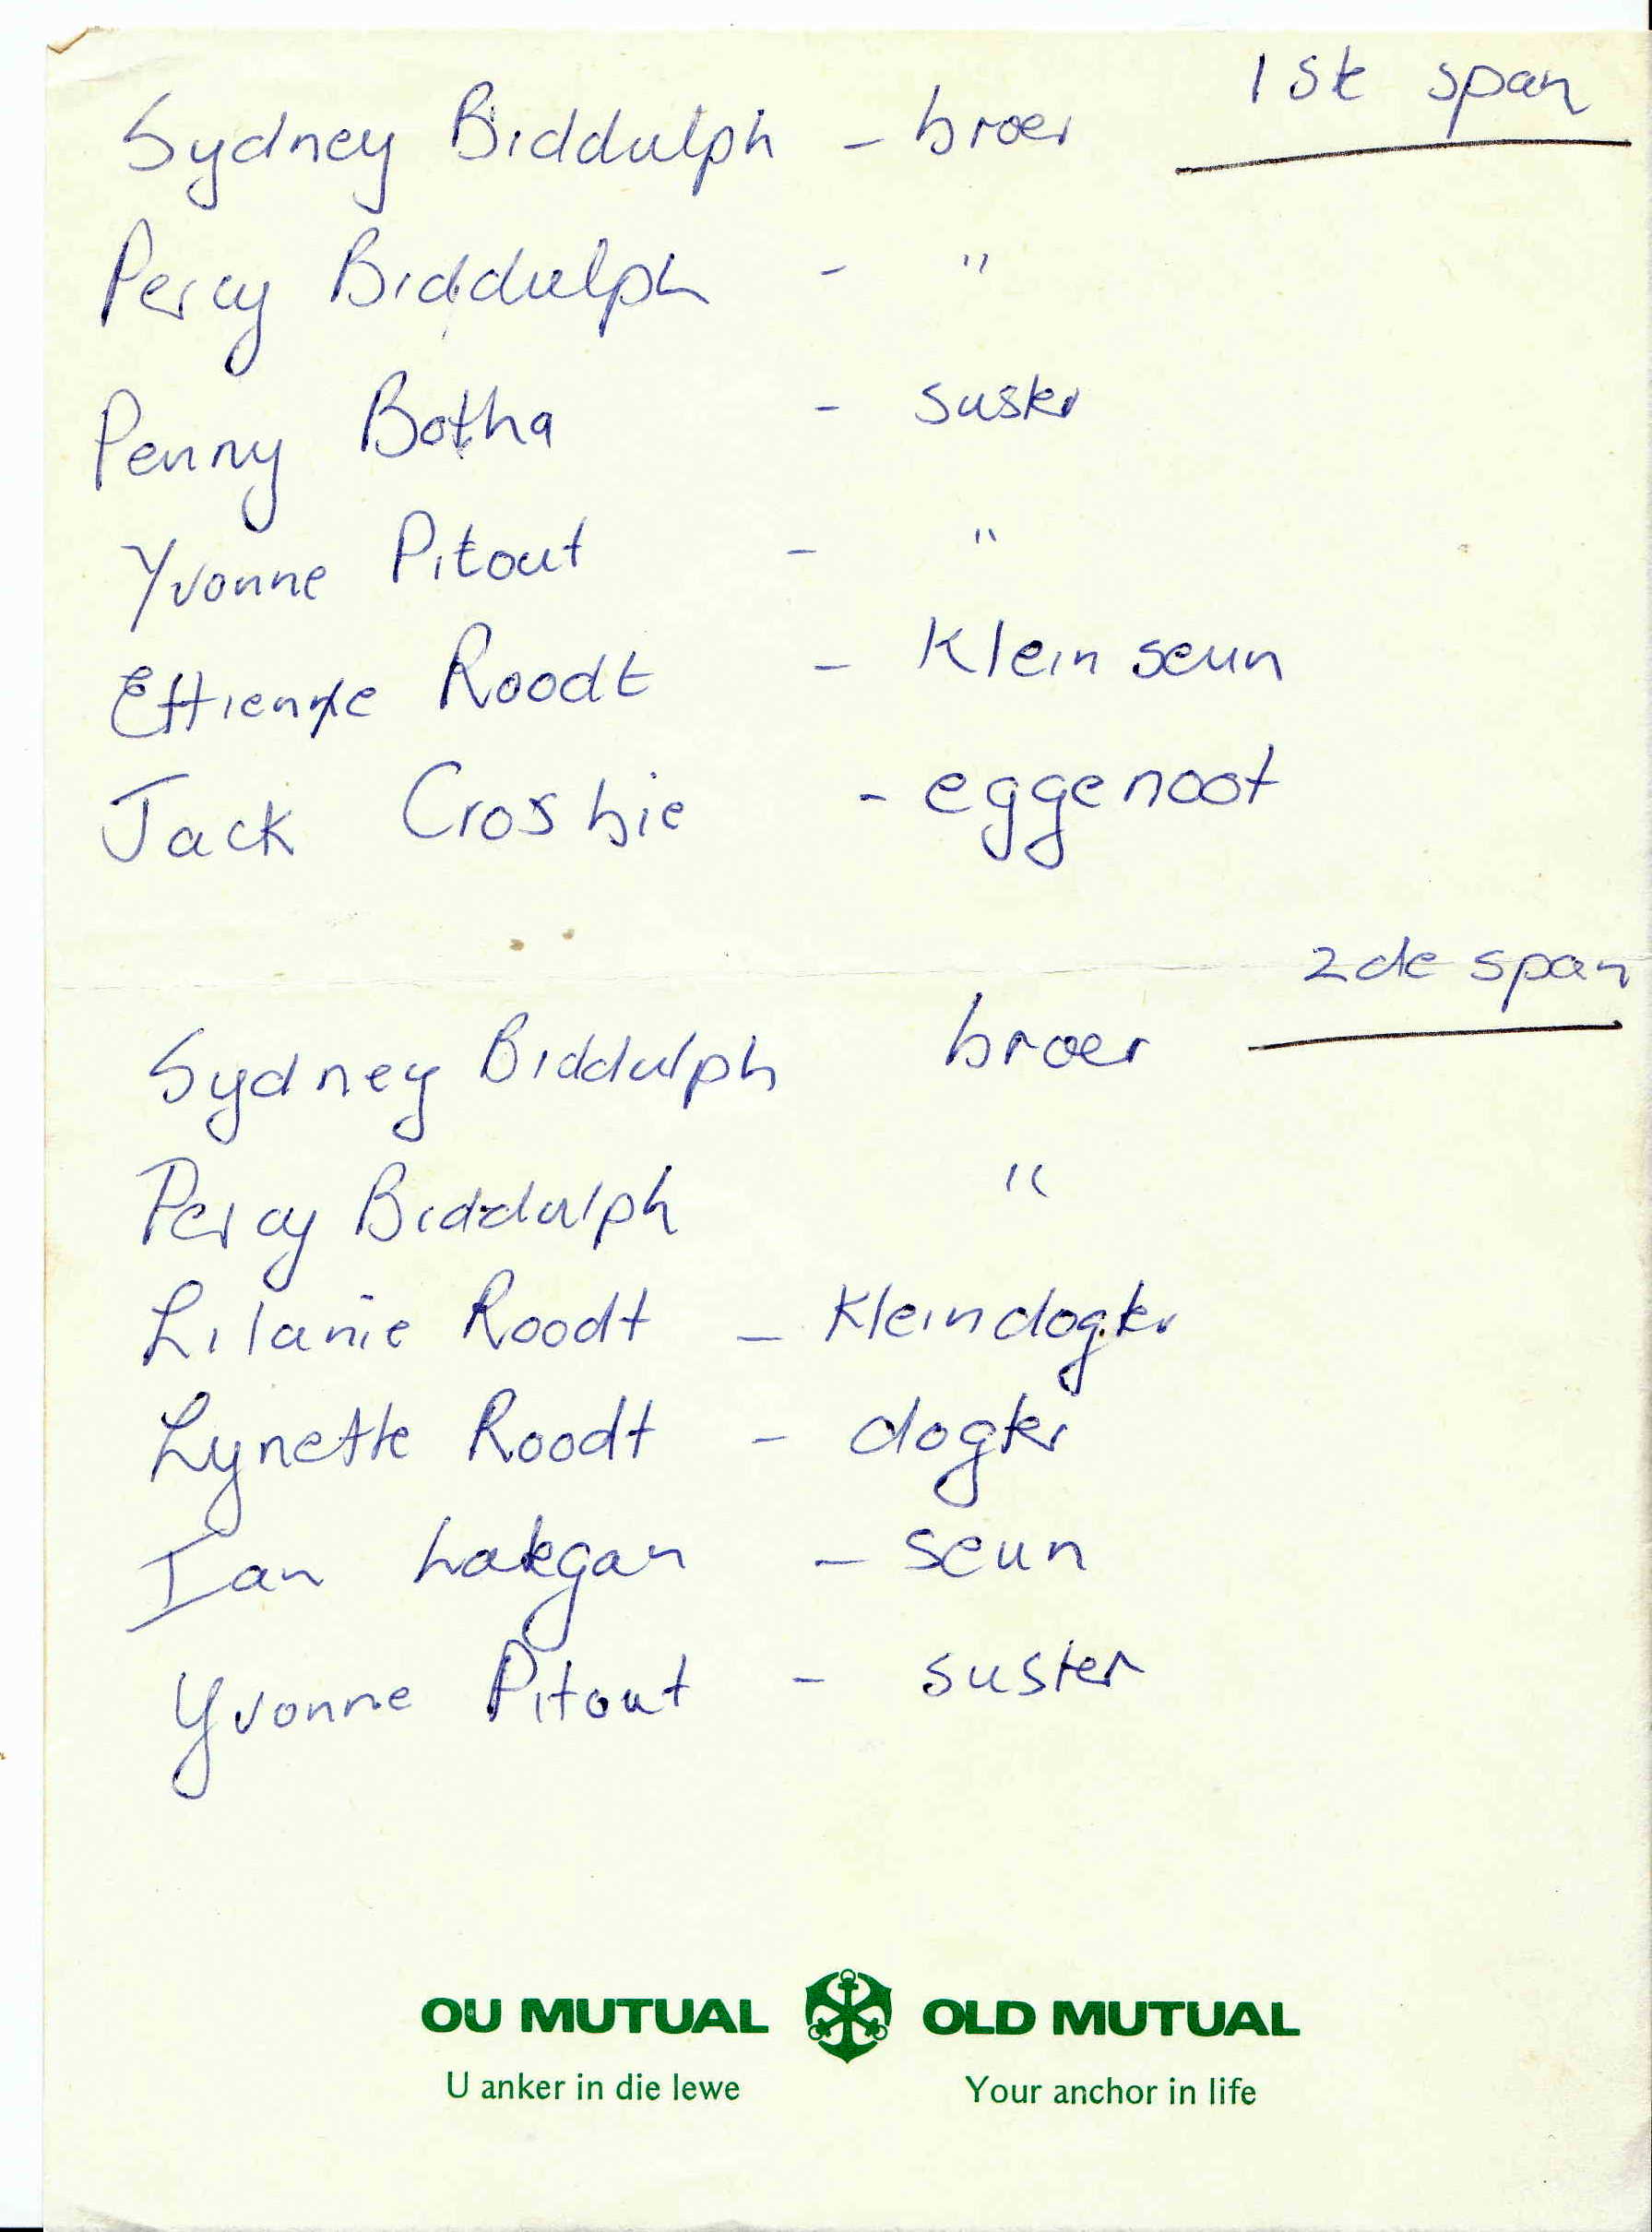 1ste span
Sydney Biddulph - broer
Percy Biddulph - "
Penny Botha - suster
Yvonne Pitout - "
Ettienne Roodt - Kleinseun
Jack Crosbie - eggenoot
2de span
Sydney Biddulph broer
Percy Biddulph "
Lilanie Roodt - Kleindogter
Lynette Roodt - dogter
Ian - seun
Yvonne Pitout - suster
OU MUTUAL OLD MUTUAL
U anker in die lewe Your anchor in life